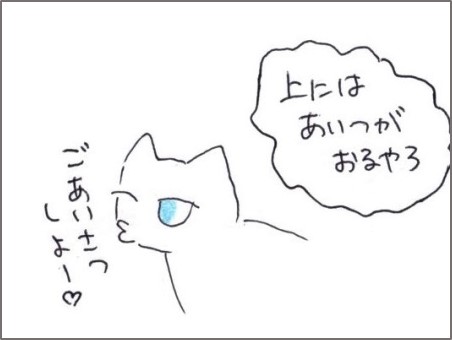 上には
あいつが
おるやろ
ごあいさつ
しよー♡